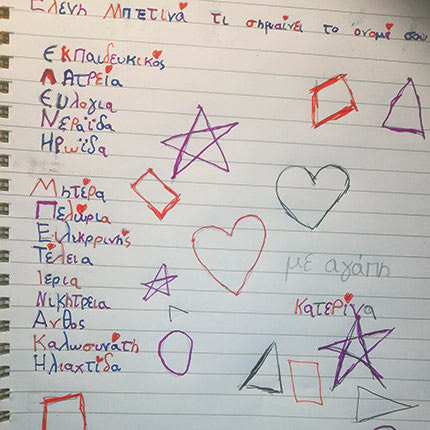 Ελενη Μπετινά τι σημαίνει το όνομά σου
Εκπαιδευκικός
Λατρεία
Ευλαγια
Νεραϊδα
Ηρωϊδα
Μητέρα
Πελώρια
Ειλεκρρινής
Τέλεια
Ιερια
Νικητρεια
Ανθος
Καλωσυνάτη
Ηλιαχτίδα
με αγάπη
Κατερίνα